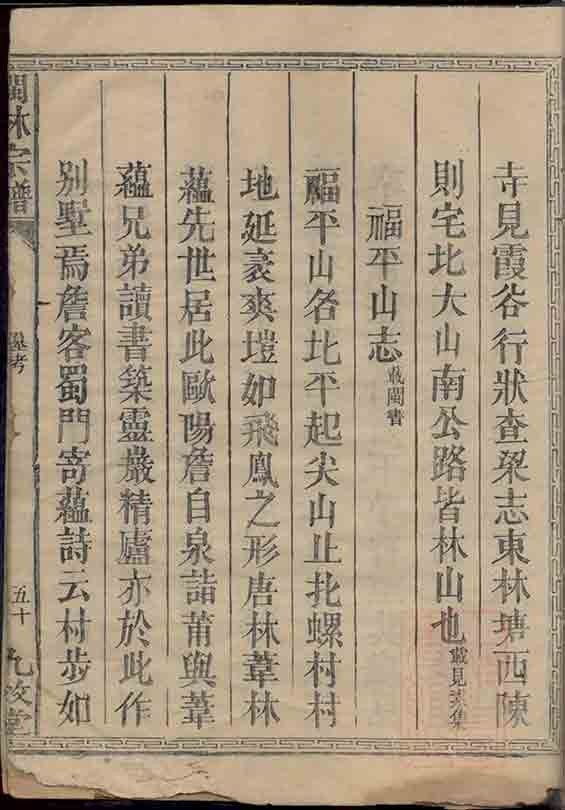 寺見霞谷行狀查梁志東林塘西陳
則宅北大山南公路皆林山也載見素集
福平山志載閩書
福平山名北平起尖山止扎螺村村
地延袤爽塏如飛鳳之形唐林葦林
蘊先世居此歐陽詹自泉詣莆與葦
蘊兄弟讀書築靈巖精廬亦於此作
別墅焉詹客蜀門寄蘊詩云村步如
閩林宗譜
考
五十
九牧堂